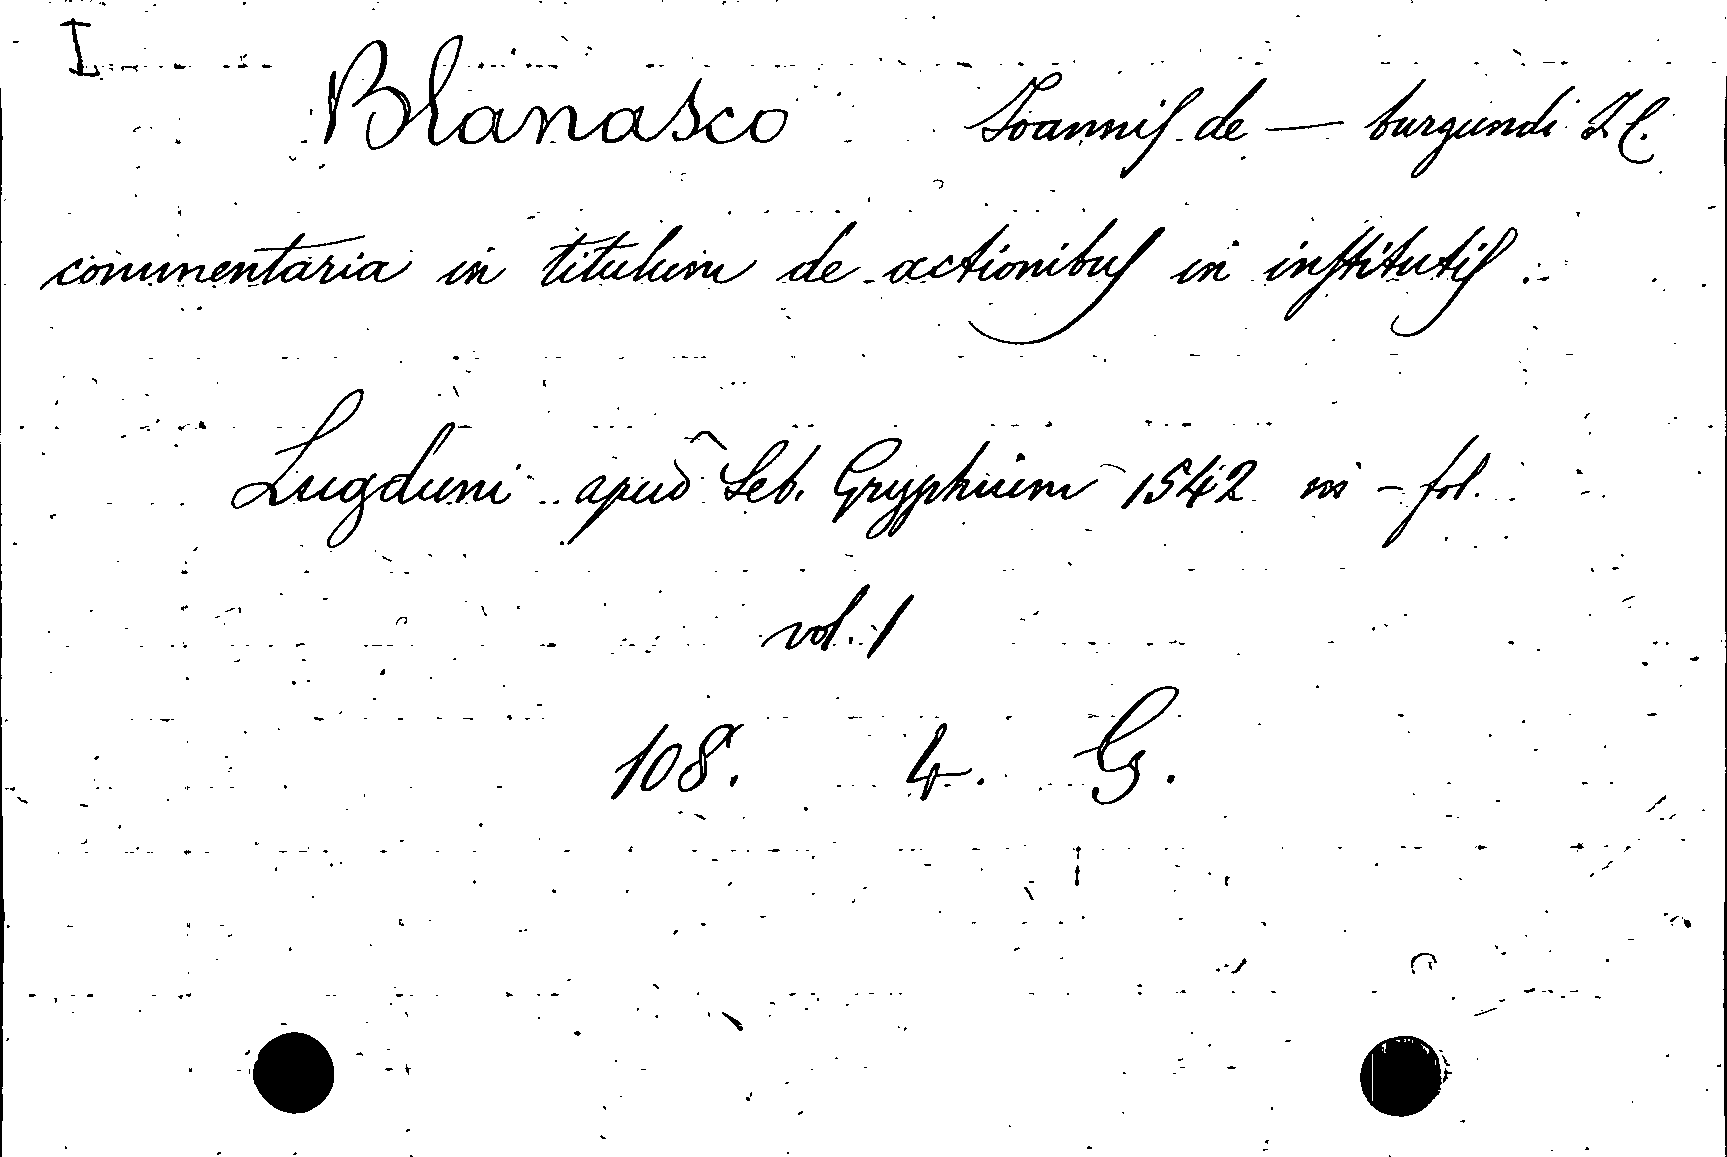 I
Blanasco Joannis de — burgundi I C.
commentaria in titulum de actionibus in institutis.
Lugduni apud Seb. Gryphium 1542 in-fol.
vol. 1
108. 4. G.